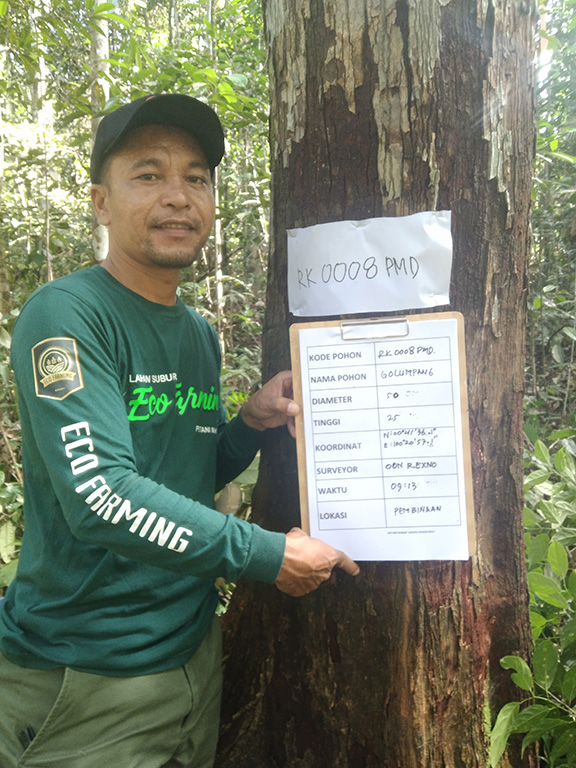 RK 0008 PMD
KODE POHON RK 0008 PMD.
NAMA POHON GOLUMPANG
DIAMETER 50
TINGGI 25
KOORDINAT
SURVEYOR ODN REXNO
WAKTU 09:13
LOKASI PEMBINAAN
LAHAN SUBUR
Eco Farmin
PETANI
ECO FARMING